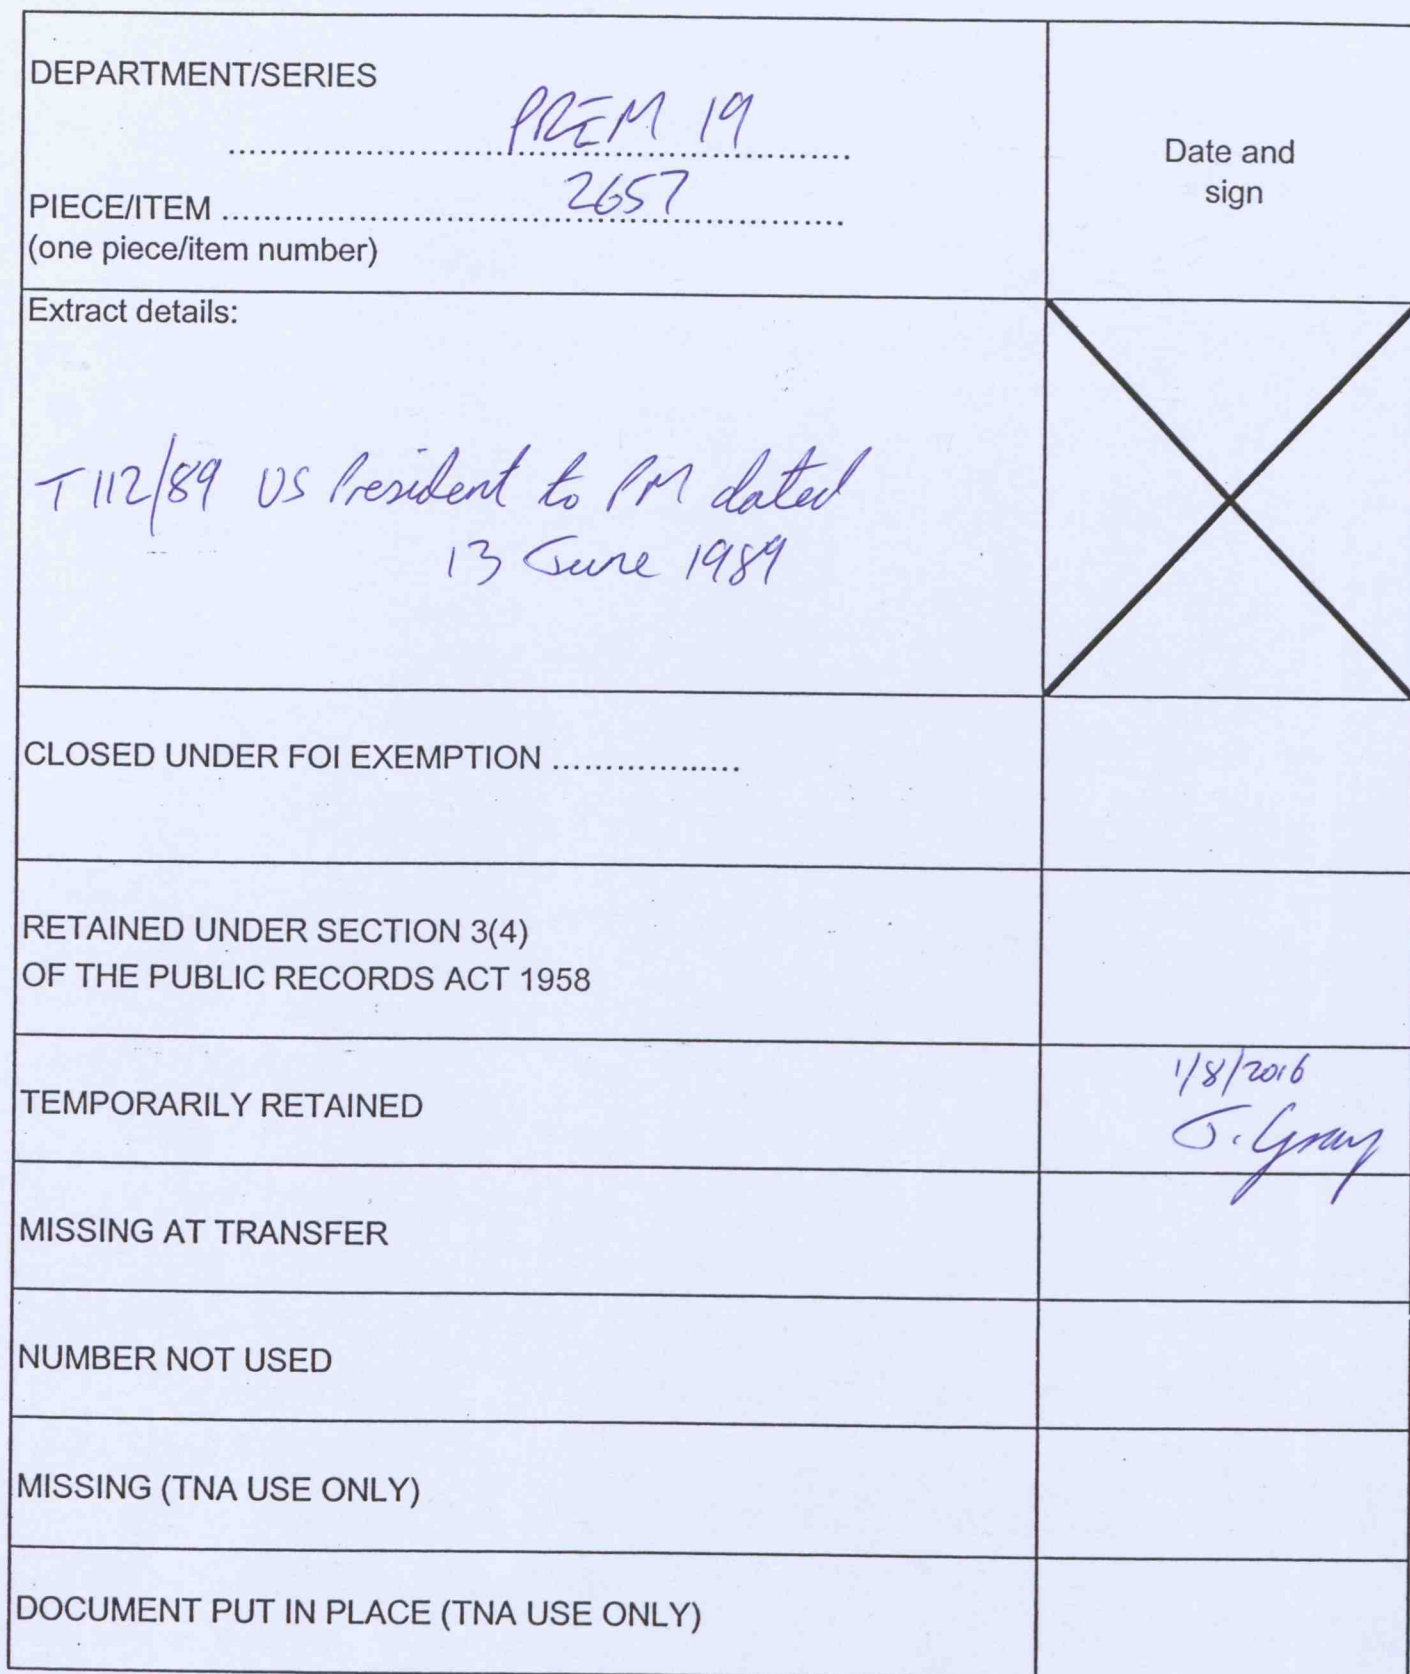 DEPARTMENT/SERIES
PREM 19
Date and
sign
PIECE/ITEM
2657
(one piece/item number)
Extract details:
T112/89 US President to PM dated
13 June 1989
CLOSED UNDER FOI EXEMPTION ..................
RETAINED UNDER SECTION 3(4)
OF THE PUBLIC RECORDS ACT 1958
TEMPORARILY RETAINED
1/8/2016
J. Gray
MISSING AT TRANSFER
NUMBER NOT USED
MISSING (TNA USE ONLY)
DOCUMENT PUT IN PLACE (TNA USE ONLY)